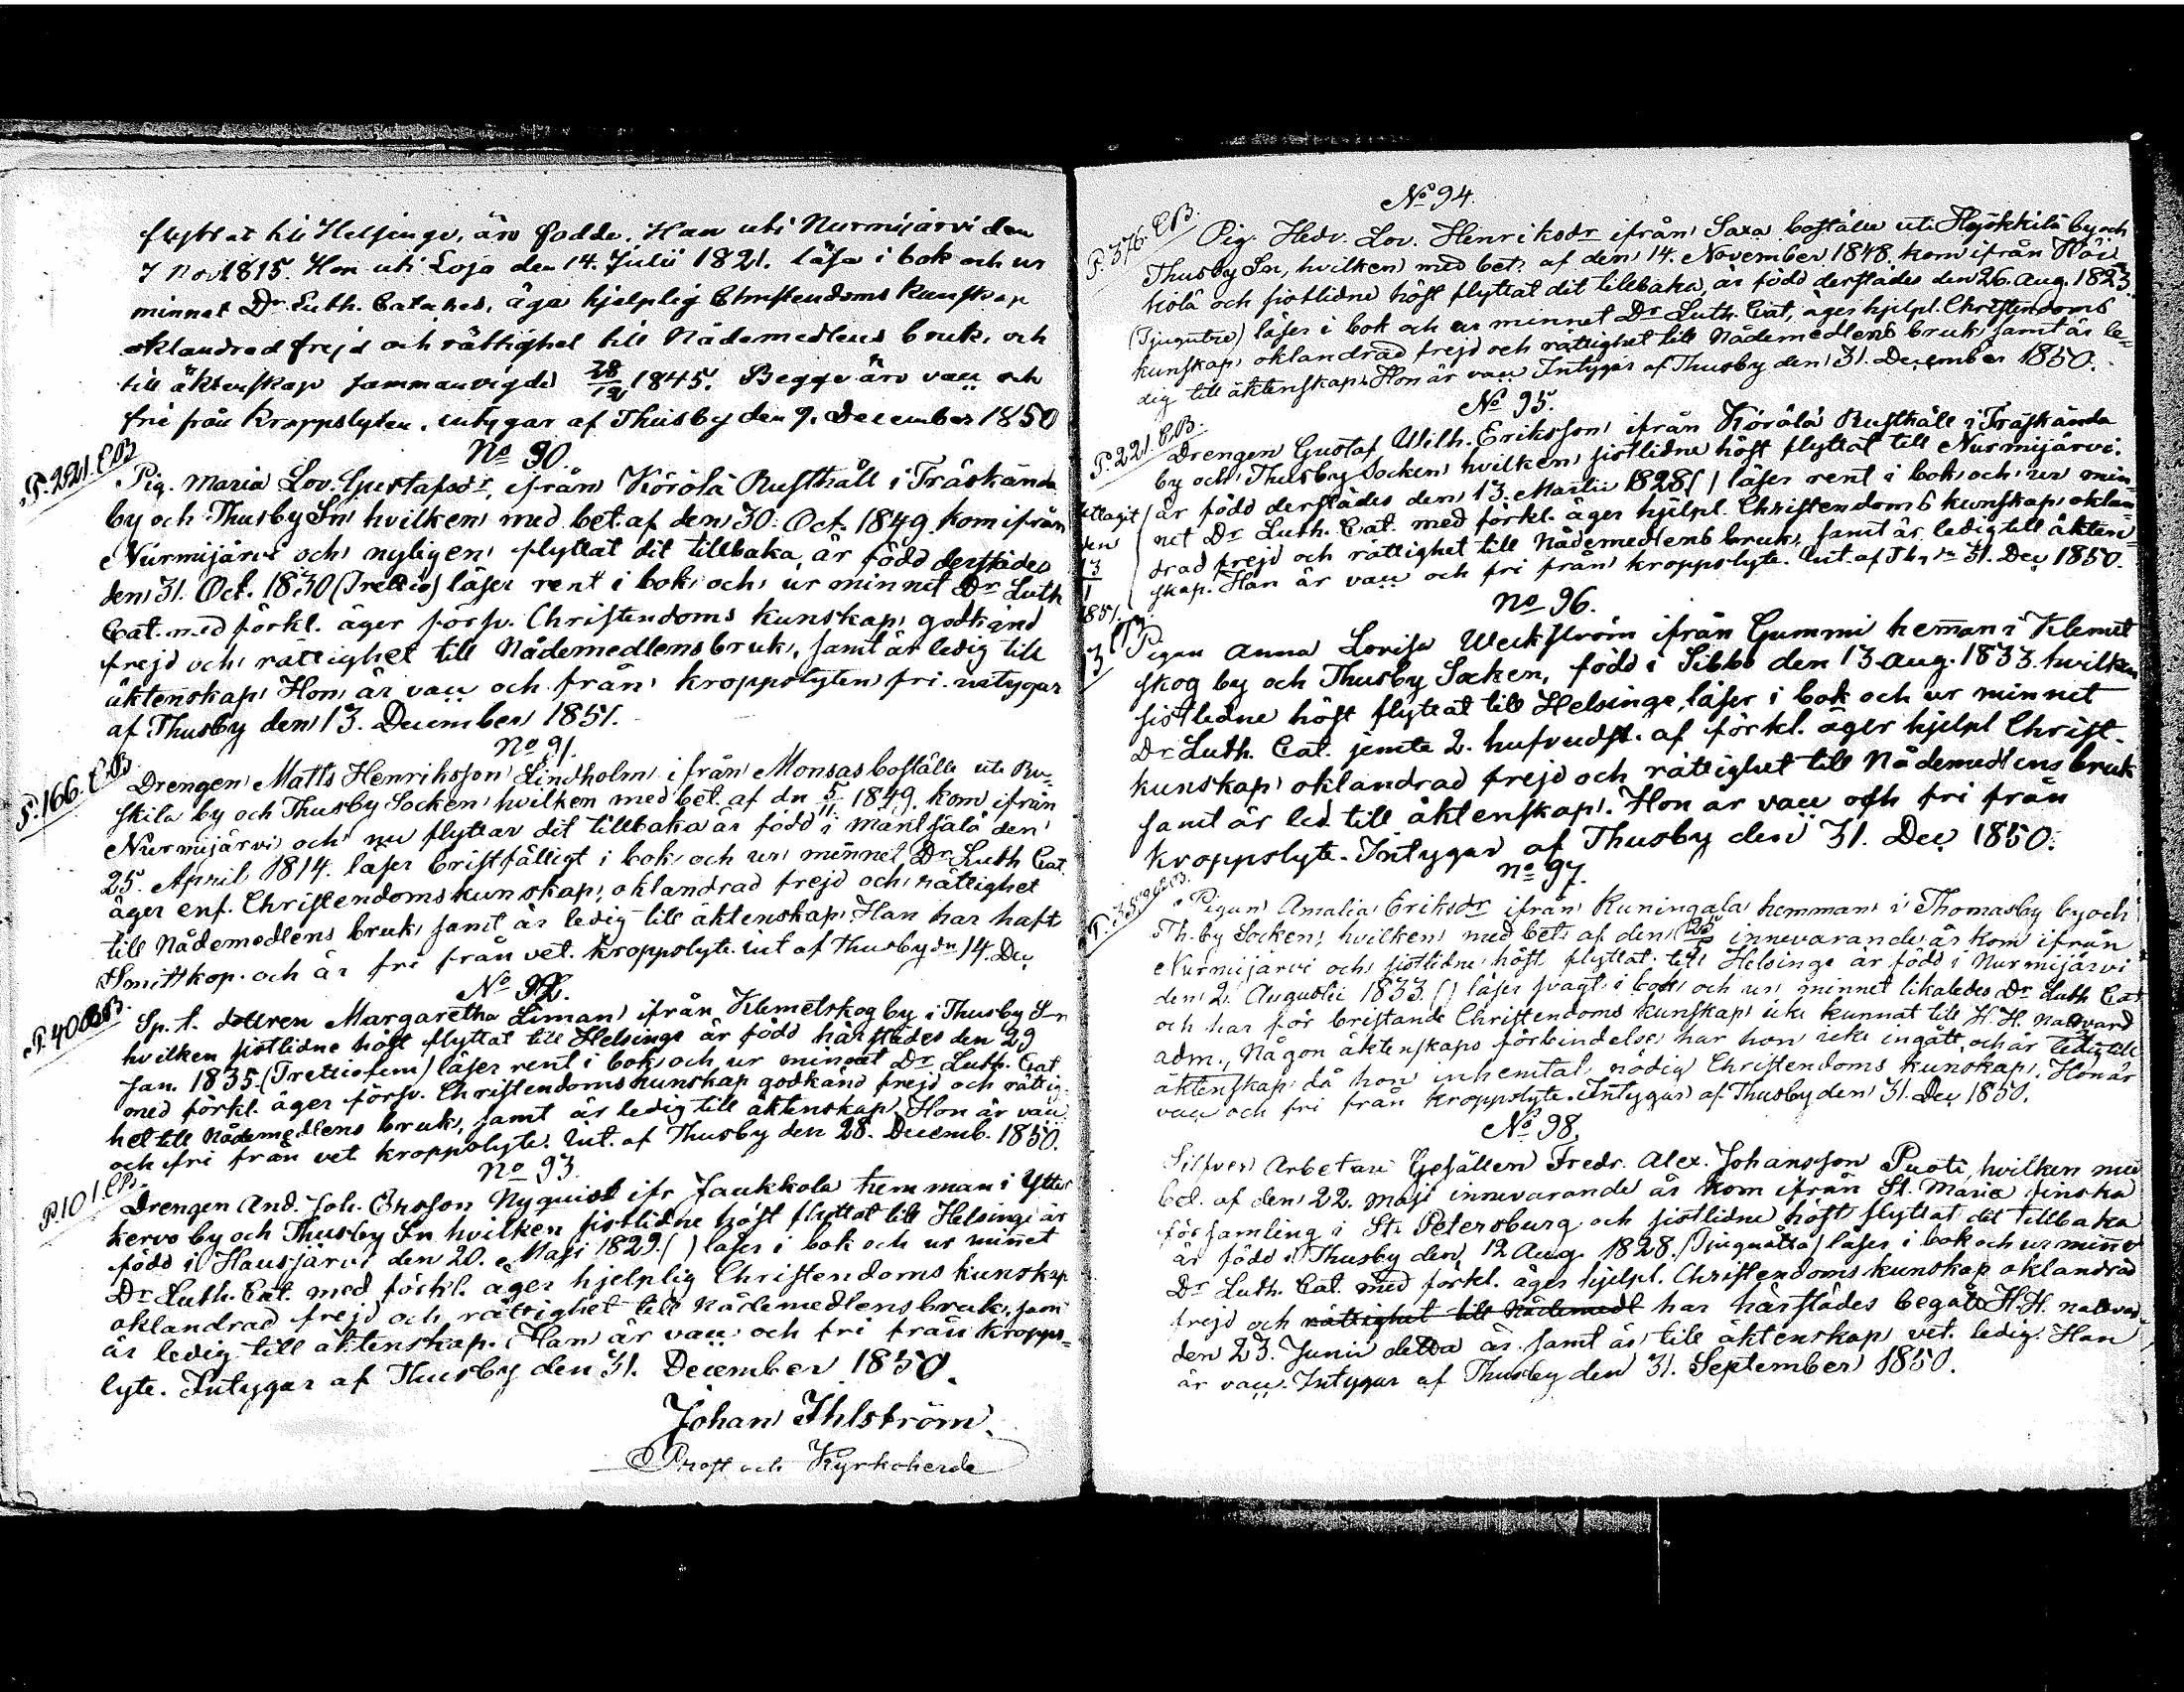 flyttat till Helsinge, äro födde. Han uti Nurmijärvi den
7 Nov 1815. Hon uti Lojo den 14. Julii 1821. läsa i bok och ur
minnet Dr Luth. Cateches, äga hjelplig Christendoms kunskap
oklandrad frejd och rättighet till Nådemedlens bruk, och
till äktenskap sammanvigde 28/12 1845. Begge äro vacc och
frie från kroppslyten, intygar af Thusby den 9. December 1850
No 90.
P. 221. C.B.
Pig. Maria Lov. Gustafsdr, ifrån Körölä Rusthåll i Träskända
by och Thusby Sn hvilken med bet. af den 30. Oct. 1849. kom ifrån
Nurmijärvi och nyligen flyttat dit tillbaka, är född derstädes
den 31. Oct. 1830 (Trettio) läser rent i bok och ur minnet Dr Luth
Cat. med förkl. äger försv. Christendoms kunskap, godkänd
frejd och rättighet till Nådemedlens bruk, samt är ledig till
äktenskap. Hon är vacc och från kroppslyten fri. intygar
af Thusby den 13. December 1851.
No 91.
P. 166. C.B.
Drengen Matts Henriksson Lindholm ifrån Monsas boställe uti Ru-
skila by och Thusby Socken hvilken med bet. af dn 5/11 1849. kom ifrån
Nurmijärvi och nu flyttar dit tillbaka är född i Mäntsälä den
25. April 1814. läser bristfälligt i bok och ur minnet Dr Luth Cat.
äger enf. Christendoms kunskap, oklandrad frejd och rättighet
till Nådemedlens bruk samt är ledig till äktenskap. Han har haft
Smittkop. och är fri från vet. kroppslyte. int af Thusby dn 14. Dec
No 92.
P. 40 C.B.
Sp. t. dottren Margaretha Liman ifrån Klemetskog by i Thusby Sn
hvilken sistlidne höst flyttat till Helsinge är född härstädes den 29
Jan. 1835 (Trettiofem) läser rent i bok och ur minnet Dr Luth. Cat.
med förkl. äger försv. Christendoms kunskap godkänd frejd och rättig-
het till Nådemedlens bruk, samt är ledig till äktenskap. Hon är vacc
och fri från vet. kroppslyte. Int. af Thusby den 28. Decemb. 1850.
No 93.
P. 101. C.B.
Drengen And. Joh. Ersson Nyquist ifr Jaukkola hemman i Ytter
kervo by och Thusby Sn hvilken sistlidne höst flyttat till Helsinge är
född i Hausjärvi den 20. Maji 1829. ( ) läser i bok och ur minnet
Dr Luth. Cat. med förkl. äger hjelplig Christendoms kunskap
oklandrad frejd och rättighet till Nådemedlens bruk, samt
är ledig till äktenskap. Han är vacc och fri från kropps-
lyte. Intygar af Thusby den 31. December 1850.
Johan Ihlström.
Prost och Kyrkoherde
No 94.
P. 376. C.B.
Pig. Hedv. Lov. Henriksdr ifrån Saxa boställe uti Hyökkilä by och
Thusby Sn, hvilken med bet. af den 14. November 1848. kom ifrån Noi-
kola och sistlidne höst flyttat dit tillbaka, är född derstädes den 26. Aug. 1823.
(Tjugutre) läser i bok och ur minnet Dr Luth. Cat, äger hjelpl. Christendoms
kunskap, oklandrad frejd och rättighet till Nådemedlens bruk samt är le-
dig till äktenskap. Hon är vacc Intygar af Thusby den 31. December 1850.
No 95.
P. 221. C.B.
Drengen Gustaf Wilh. Eriksson ifrån Körölä Rusthåll i Träskända
by och Thusby Socken hvilken sistlidne höst flyttat till Nurmijärvi.
är född derstädes den 13. Martii 1828 ( ) läser rent i bok och ur min-
net Dr Luth. Cat. med förkl. äger hjelpl. Christendoms kunskap oklan-
drad frejd och rättighet till Nådemedlens bruk, samt är ledig till äkten-
skap. Han är vacc och fri från kroppslyte. Int. af Thby dn 31. Dec 1850.
uttagit
den
13
1
1851.
No 96.
Pigan Anna Lovisa Weckström ifrån Gummi hemman i Klemet
skog by och Thusby Socken, född i Sibbo den 13 Aug. 1833. hvilken
sistledne höst flyttat till Helsinge, läser i bok och ur minnet
Dr Luth. Cat. jemte 2. hufvudst. af förkl. äger hjelpl Christ.
kunskap, oklandrad frejd och rättighet till Nådemedlens bruk
samt är led. till äktenskap. Hon är vacc och fri från
kroppslyte. Intygar af Thusby den 31. Dec 1850.
No 97.
Pigan Amalia Eriksdr ifrån Kuningala hemman i Thomasby by och
Th.by Socken, hvilken med bet. af den innevarande år kom ifrån
Nurmijärvi och sistlidne höst flyttat till Helsinge är född i Nurmijärvi
den 2. Augusti 1833. ( ) läser svagt i bok och ur minnet likaledes Dr Luth Cat
och har för bristande Christendoms kunskap icke kunnat till H. H. Nattvard
adm., Någon äktenskaps förbindelse har hon icke ingått, och är ledig till
äktenskap då hon inhemtat nödig Christendoms kunskap. Hon är
vacc och fri från kroppslyte. Intygar af Thusby den 31. Dec 1850.
No 98.
Silfver Arbetare Gesällen Fredr. Alex. Johansson Puoti, hvilken med
bet. af den 22. Maji innevarande år kom ifrån St. Maria finska
församling i St. Petersburg och sistlidne höst flyttat dit tillbaka
är född i Thusby den 12 Aug. 1828. (Tjuguåtta) läser i bok och ur minnet
Dr Luth. Cat. med förkl. äger hjelpl. Christendoms kunskap oklandrad
frejd och rättighet till Nådemedl har härstädes begått H. H. nattvard
den 23. Junii detta år samt är till äktenskap vet. ledig. Han
är vacc. Intygar af Thusby den 31. September 1850.